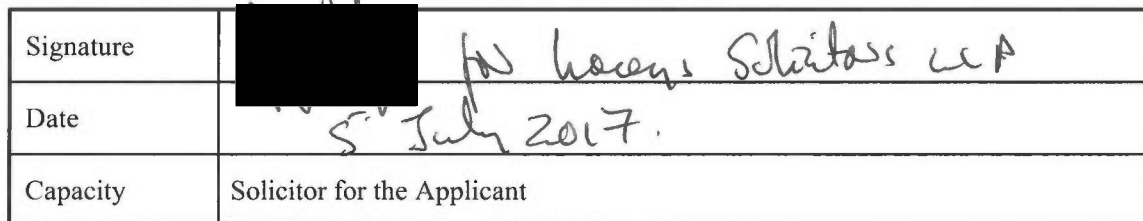 Signature for Laceys Solicitors LLP
Date 5 July 2017.
Capacity Solicitor for the Applicant